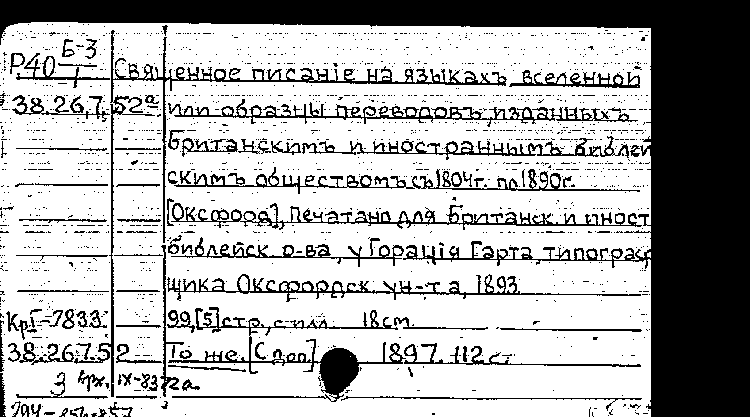 Р40 Б-3/1 Священное писанiе на языкахъ вселенной
38.26.7.52а или образцы переводовъ, изданныхъ
Британскимъ и иностраннымъ библей
скимъ обществомъ съ 1804г. по 1890г.
[Оксфорд], Печатано для Британск. и иност
библейск. о-ва, у Горацiя Гарта, типограф
щика Оксфордск. ун-та, 1893.
КрI-7833 99,[5]стр., с илл. 18cm.
38.26.7.52 То же. [С доп.] 1897. 112 ст
3 крх. IX-8372а.